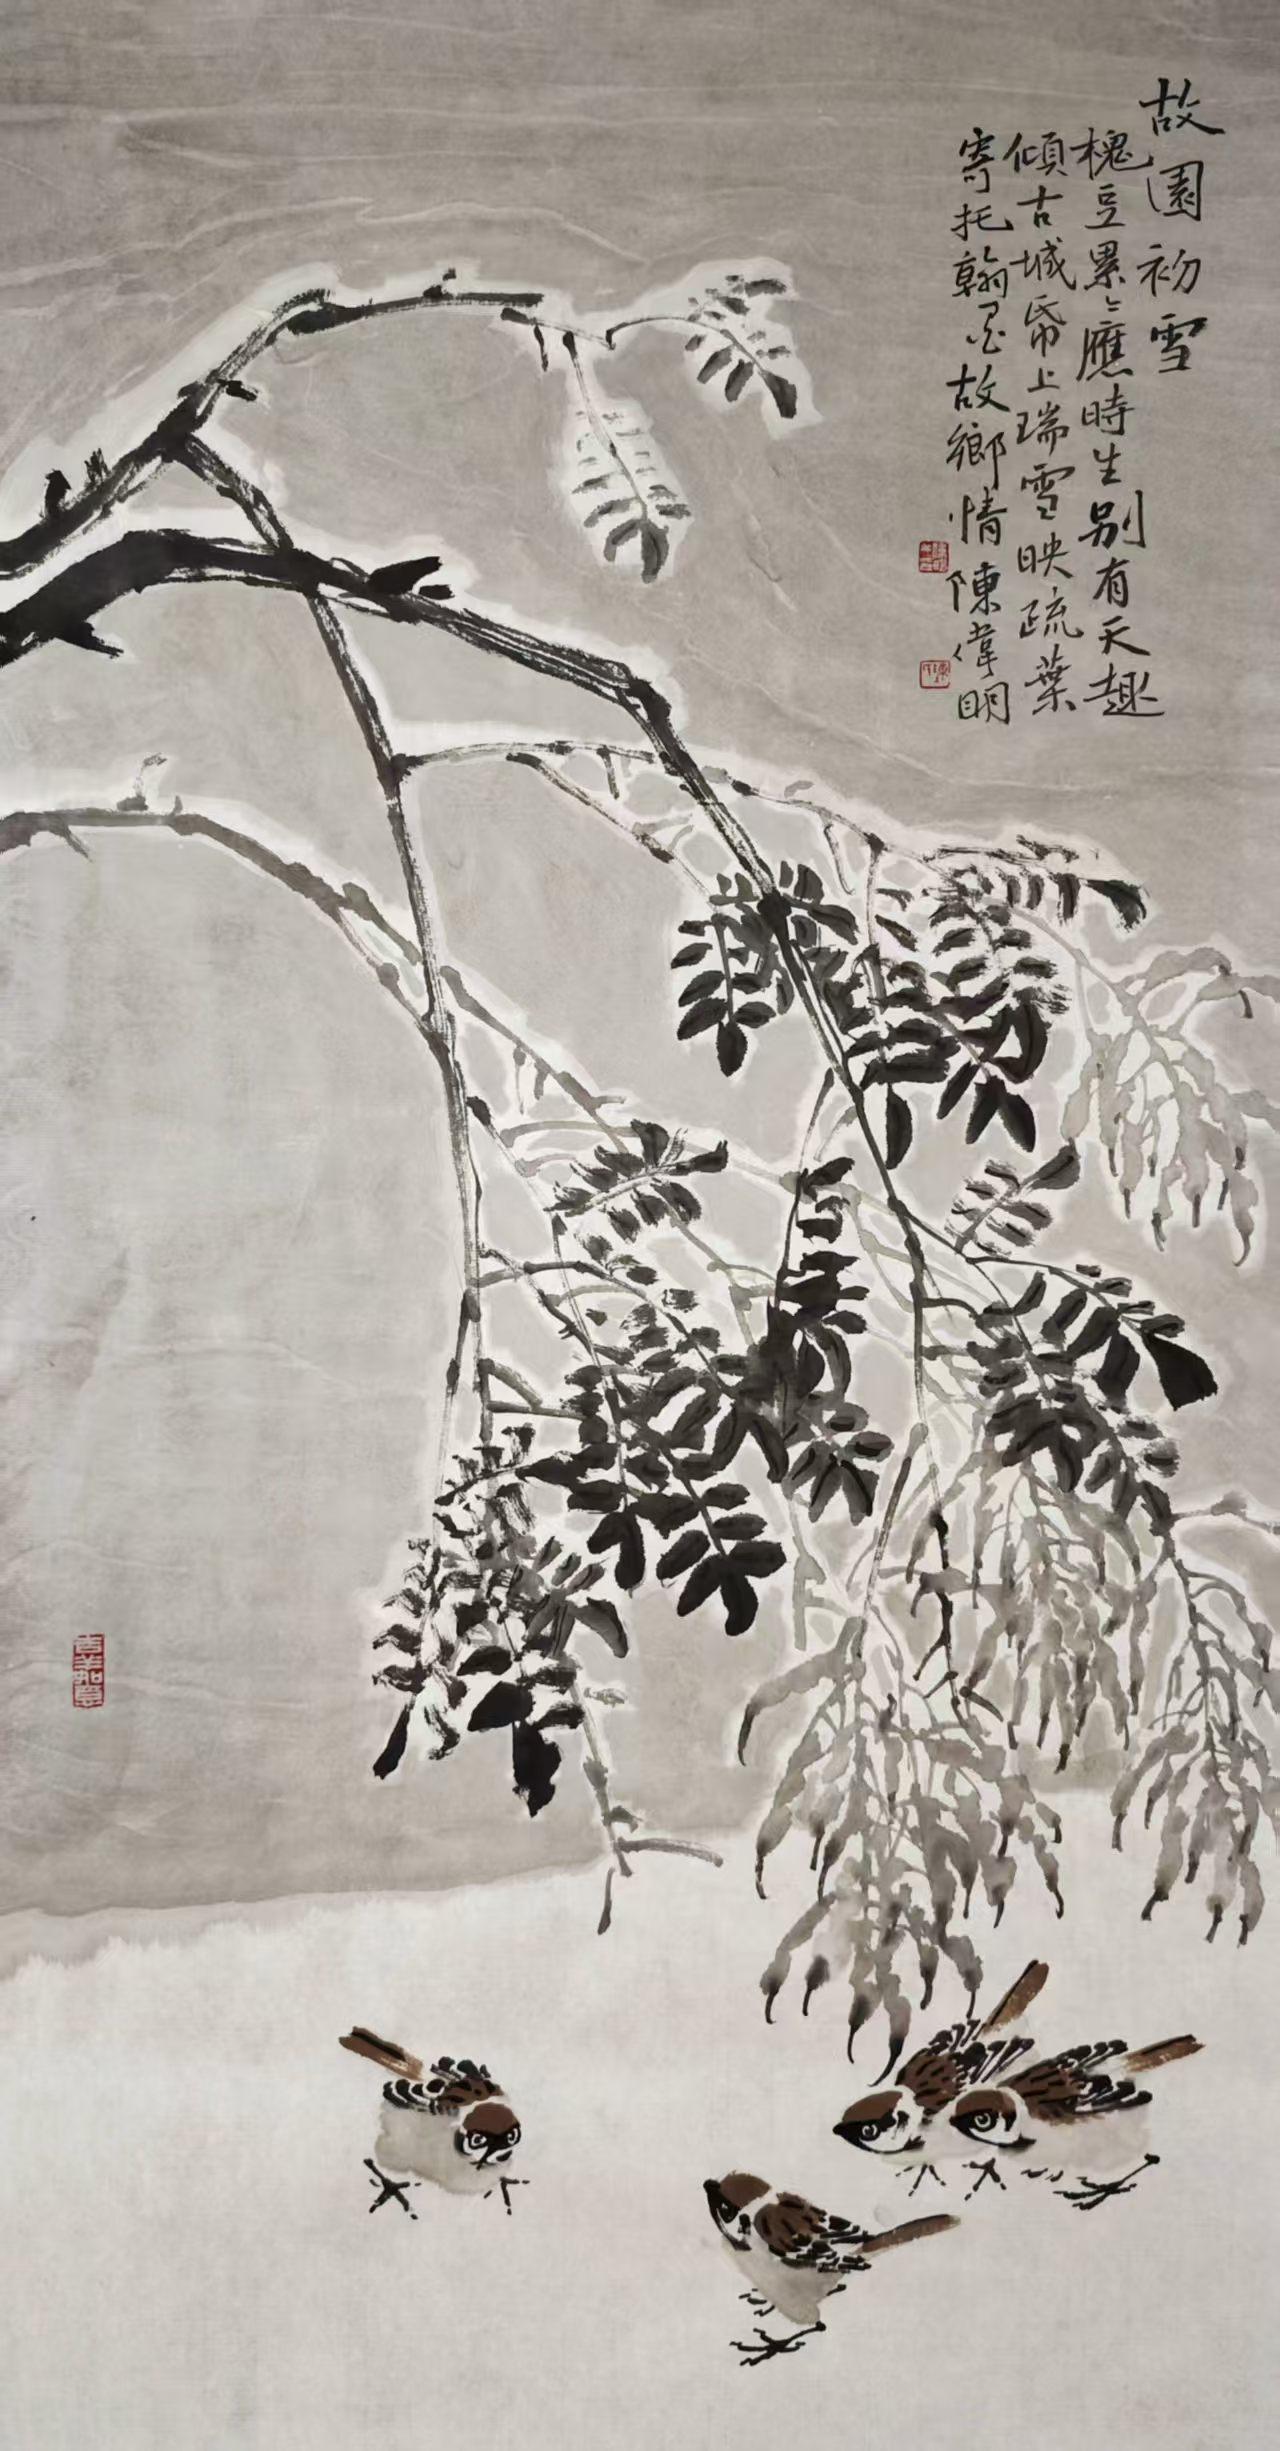 故園初雪
槐豆累々應時生别有天趣
傾古城帋上瑞雪映疏葉
寄托翰墨故鄉情 陳偉明
吉羊如意